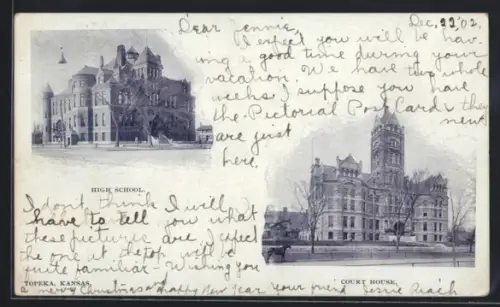 Dec. 22, '02.
Dear Jennie,
I expect you will be hav-
ing a good time during your
vacation. We have two whole
weeks. I suppose you have
the Pictorial Post Cards they
are just new
here.
HIGH SCHOOL.
I don't think I will
have to tell you what
these pictures are. I expect
the one at the top will be
quite familiar. Wishing you
TOPEKA, KANSAS.
COURT HOUSE.
a merry Christmas and happy New Year your friend Jessie